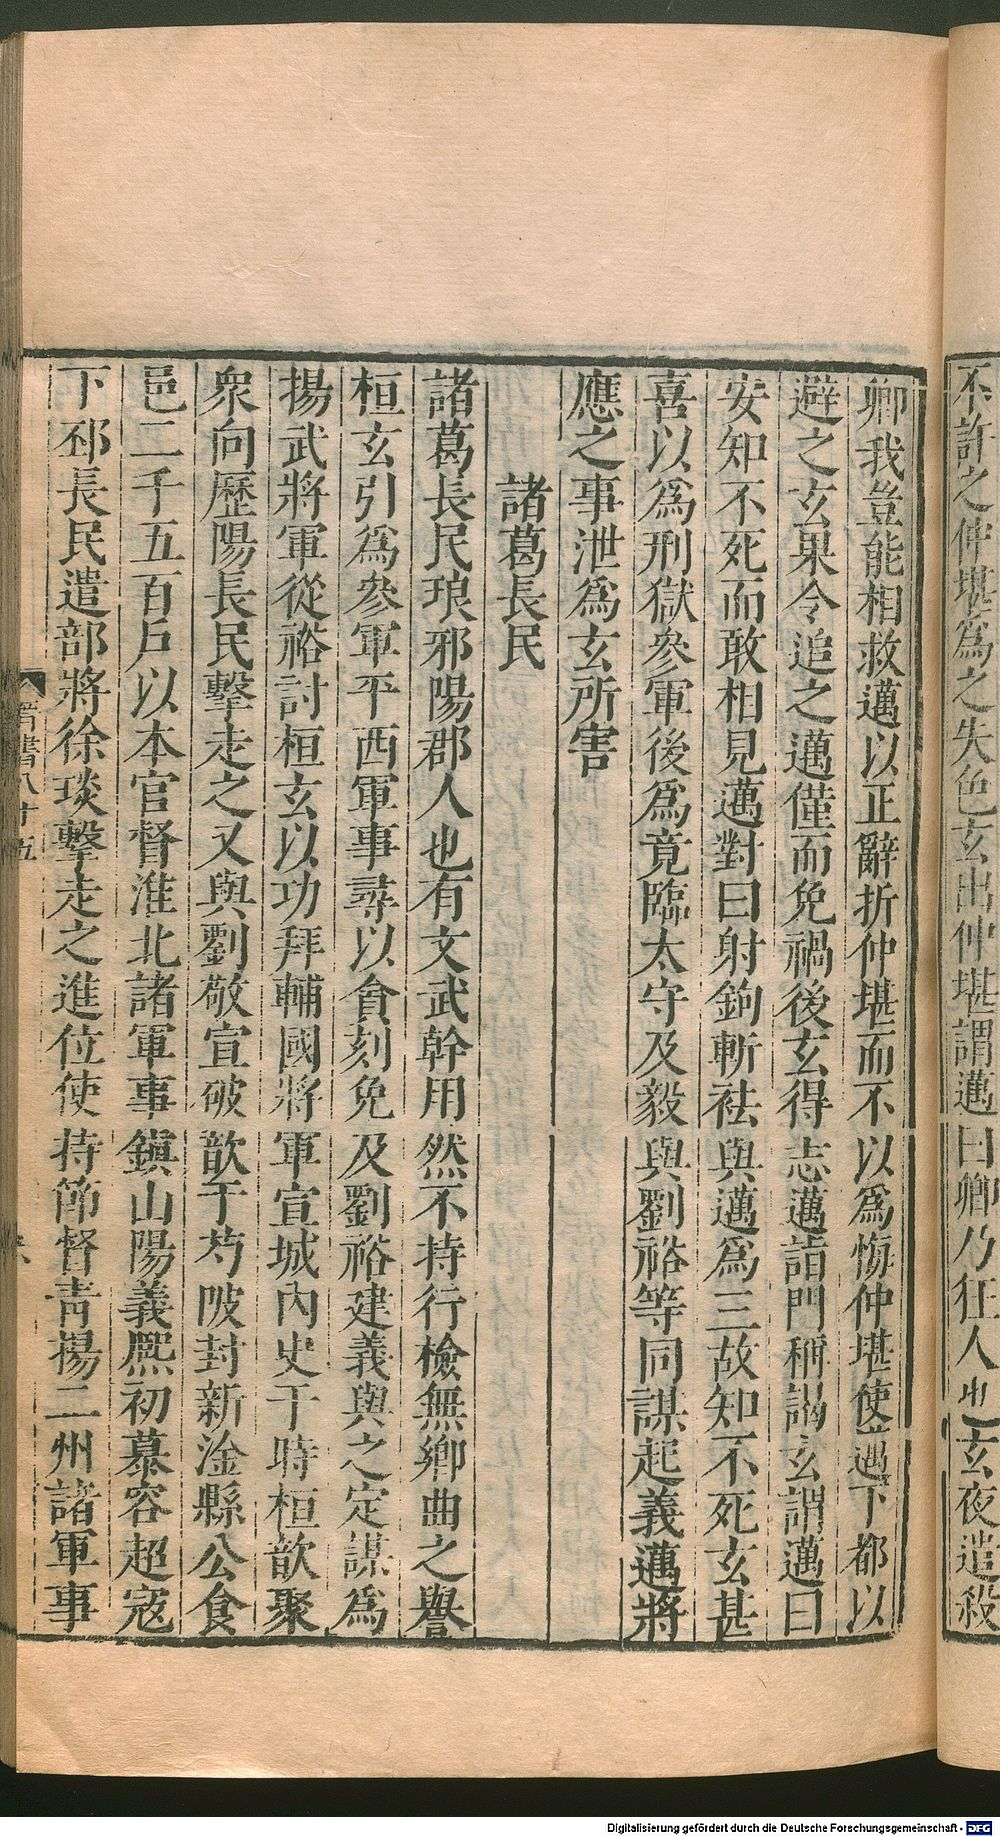 不許之仲堪爲之失色玄出仲堪謂邁曰卿乃狂人也玄夜遣殺
卿我豈能相救邁以正辭折仲堪而不以爲悔仲堪使邁下都以
避之玄果令追之邁僅而免禍後玄得志邁詣門稱謁玄謂邁曰
安知不死而敢相見邁對曰射鉤斬袪與邁爲三故知不死玄甚
喜以爲刑獄參軍後爲竟臨太守及毅與劉裕等同謀起義邁將
應之事泄爲玄所害
諸葛長民
諸葛長民琅邪陽郡人也有文武幹用然不持行檢無鄉曲之譽
桓玄引爲參軍平西軍事尋以貪刻免及劉裕建義與之定謀爲
揚武將軍從裕討桓玄以功拜輔國將軍宣城內史于時桓歆聚
衆向歷陽長民擊走之又與劉敬宣破歆于芍陂封新淦縣公食
邑二千五百戶以本官督淮北諸軍事鎭山陽義熙初慕容超寇
下邳長民遣部將徐琰擊走之進位使持節督青揚二州諸軍事
晉書八十五
Digitalisierung gefördert durch die Deutsche Forschungsgemeinschaft - DFG